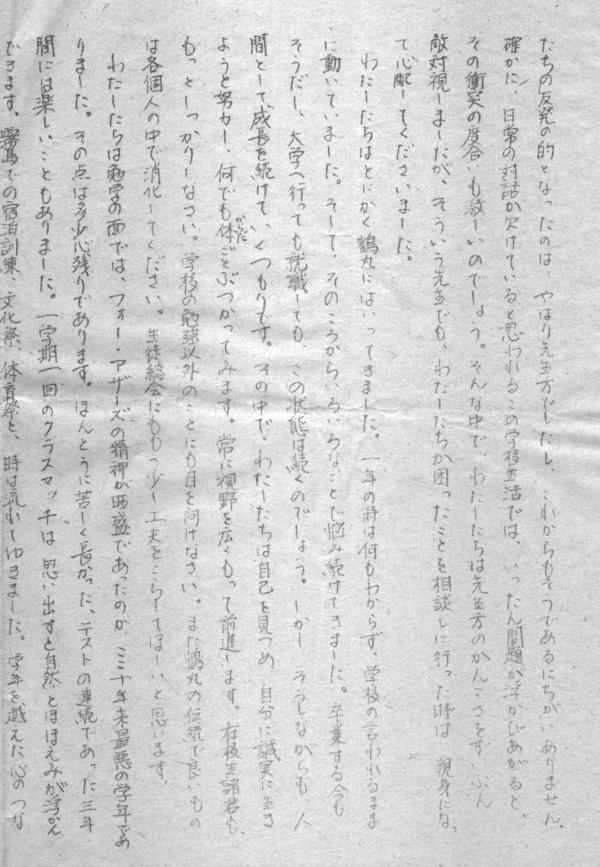 たちの反発の的となったのは、やはり先生方でしたし、これからもそうであるにちがいありません。
確かに、日常の対話が欠けていると思われるこの学校生活では、いったん問題が浮かびあがると、
その衝突の度合いも激しいのでしょう。そんな中で、わたしたちは先生方のがんこさをずいぶん
敵対視しましたが、そういう先生でも、わたしたちが困ったことを相談しに行った時は、親身にな
て心配してくださいました。
わたしたちはとにかく鶴丸にはいってきました。一年の時は何もわからず、学校の言われるまま
に動いていました。そして、そのころからいろいろなことで悩み続けてきました。卒業する今も
そうだし、大学へ行っても就職しても、この状態は続くのでしょう。しかし、そうしながらも人
間として成長を続けていくつもりです。その中で、わたしたちは自己を見つめ、自分に誠実に生き
ようと努力し、何でも体ごとぶつかってみます。常に視野を広くもって前進します。在校生諸君も、
もっとしっかりしなさい。学校の勉強以外のことにも目を向けなさい。また鶴丸の伝統で良いもの
は各個人の中で消化してください。生徒総会にももう少し工夫をこらしてほしいと思います。
わたしたちは勉学の面では、フォー・アザーズの精神が旺盛であったのか、ここ十年来最悪の学年であ
りました。その点は多少心残りであります。ほんとうに苦しく長かった、テストの連続であった三年
間には楽しいこともありました。一学期一回のクラスマッチは、思い出すと自然とほほえみが浮かん
できます。霧島での宿泊訓練、文化祭、体育祭と、時は流れてゆきました。学年を越えた心のつな